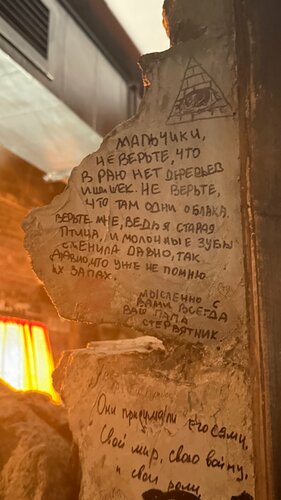 МАЛЬЧИКИ,
НЕ ВЕРЬТЕ, ЧТО
В РАЮ НЕТ ДЕРЕВЬЕВ
И ШИШЕК. НЕ ВЕРЬТЕ,
ЧТО ТАМ ОДНИ ОБЛАКА.
ВЕРЬТЕ МНЕ, ВЕДЬ Я СТАРАЯ
ПТИЦА, И МОЛОЧНЫЕ ЗУБЫ
СМЕНИЛА ДАВНО, ТАК
ДАВНО, ЧТО УЖЕ НЕ ПОМНЮ
ИХ ЗАПАХ.
МЫСЛЕННО С
ВАМИ ВСЕГДА
ВАШ ПАПА
СТЕРВЯТНИК.
Они придумали его сами,
Свой мир, свою войну,
и свои роли